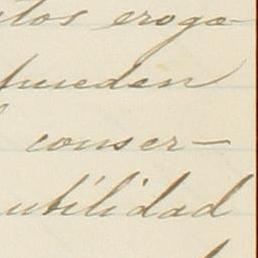 tos eroga-
pueden
conser-
utilidad